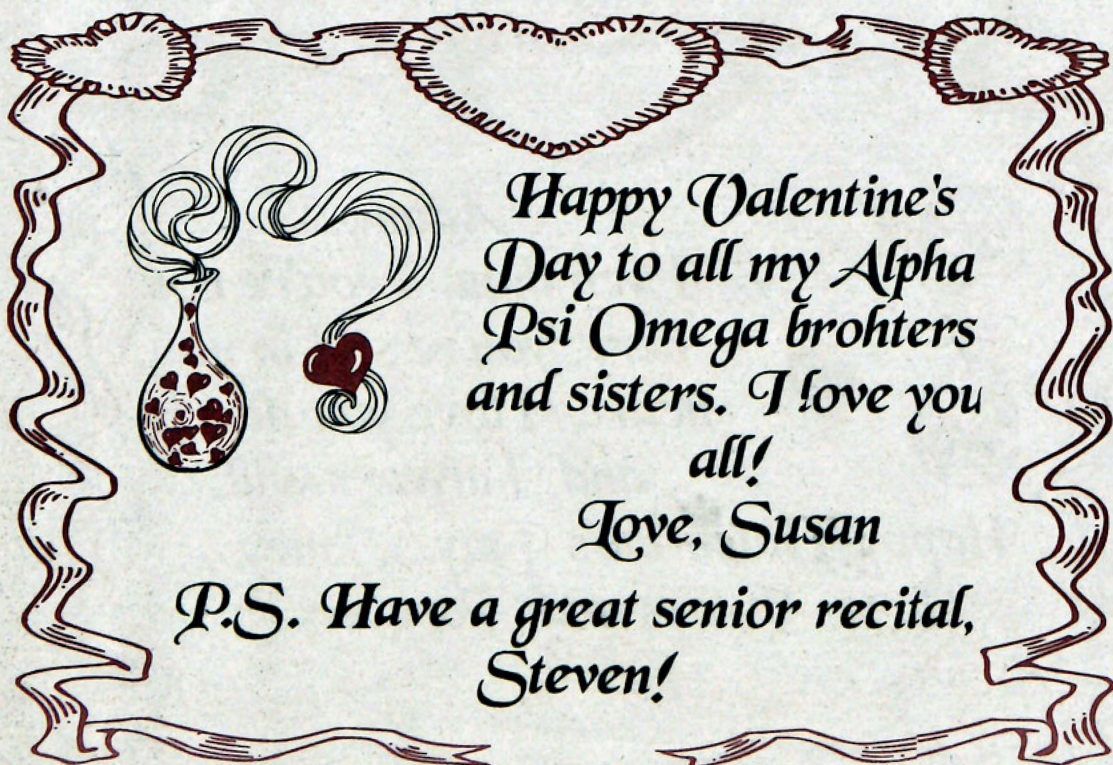 Happy Valentine's
Day to all my Alpha
Psi Omega brohters
and sisters. I love you
all!
Love, Susan
P.S. Have a great senior recital,
Steven!